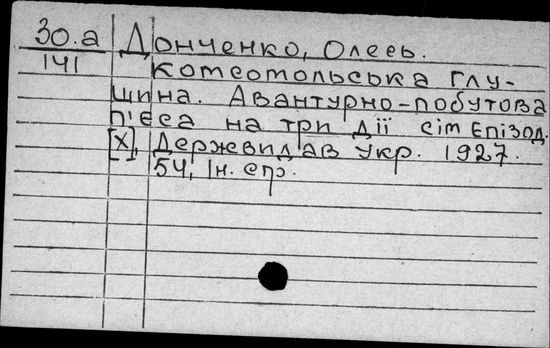 30.а Донченко, Олесь.
141 Комсомольська глу-
шина. Авантурно-побутова
п'єса на три дії сім епізод.
[Х], Держвидав Укр. 1927.
54, Ін. стр.